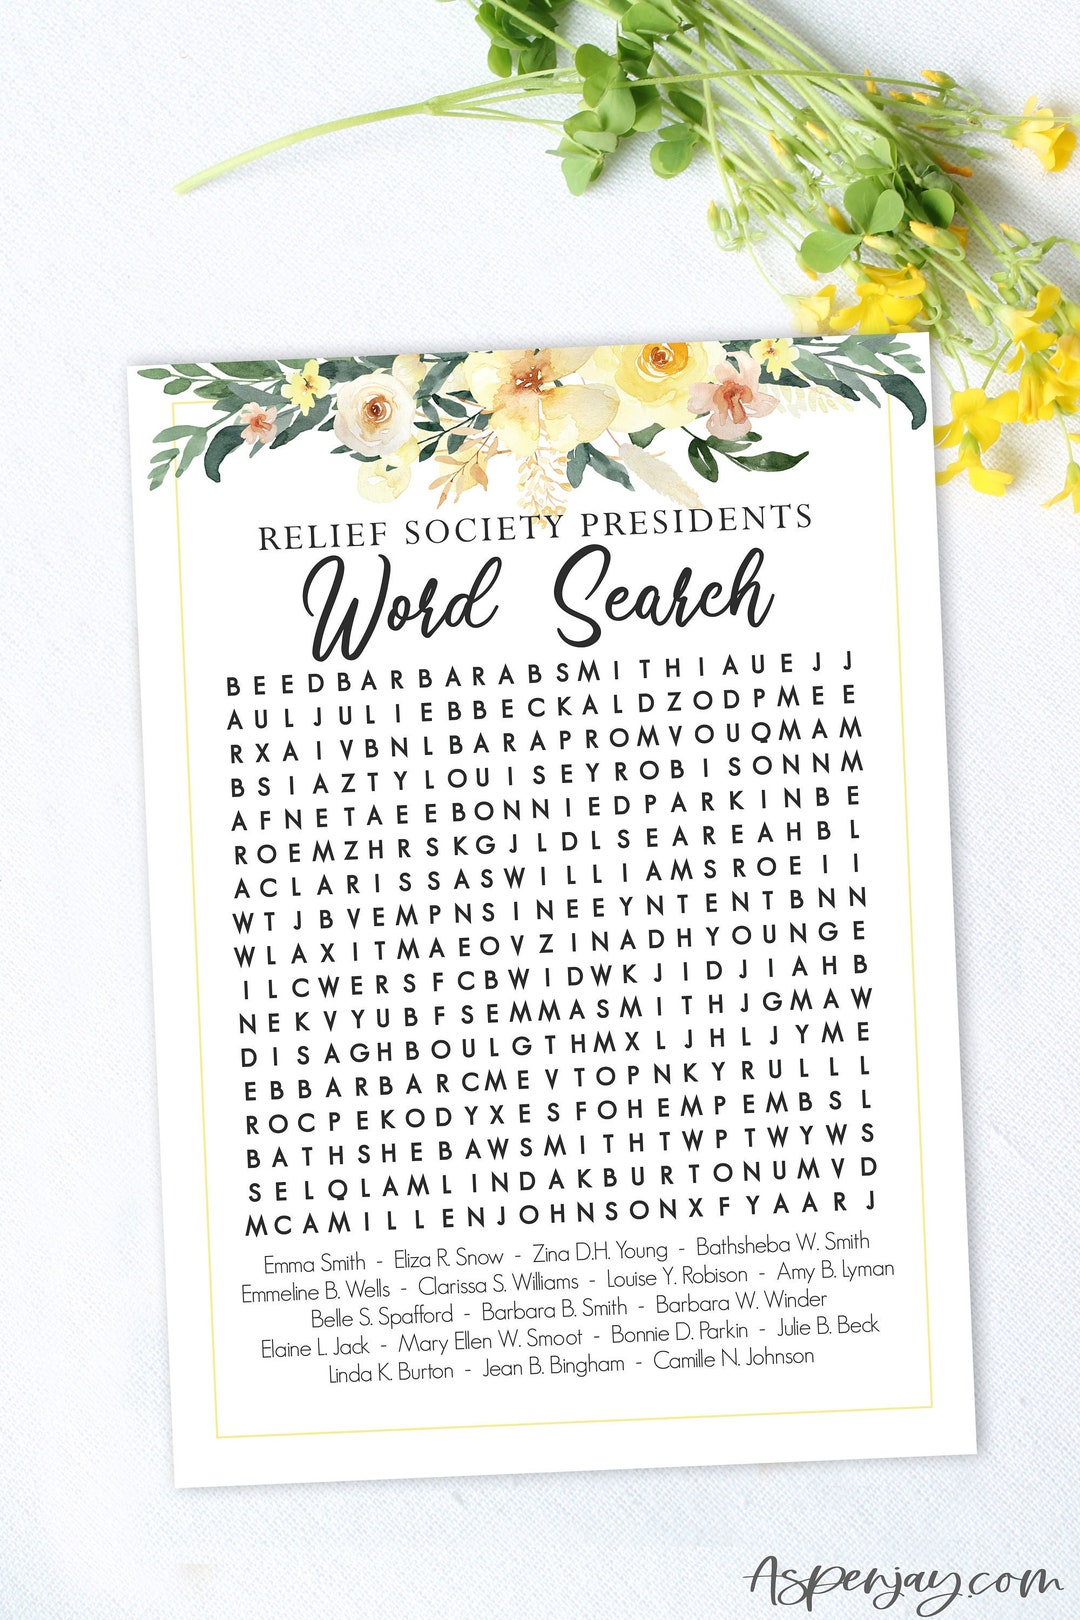 RELIEF SOCIETY PRESIDENTS
Word Search
B E E D B A R B A R A B S M I T H I A U E J J
A U L J U L I E B B E C K A L D Z O D P M E E
R X A I V B N L B A R A P R O M V O U Q M A M
B S I A Z T Y L O U I S E Y R O B I S O N N M
A F N E T A E E B O N N I E D P A R K I N B E
R O E M Z H R S K G J L D L S E A R E A H B L
A C L A R I S S A S W I L L I A M S R O E I I
W T J B V E M P N S I N E E Y N T E N T B N N
W L A X I T M A E O V Z I N A D H Y O U N G E
I L C W E R S F C B W I D W K J I D J I A H B
N E K V Y U B F S E M M A S M I T H J G M A W
D I S A G H B O U L G T H M X L J H L J Y M E
E B B A R B A R C M E V T O P N K Y R U L L L
R O C P E K O D Y X E S F O H E M P E M B S L
B A T H S H E B A W S M I T H T W P T W Y W S
S E L Q L A M L I N D A K B U R T O N U M V D
M C A M I L L E N J O H N S O N X F Y A A R J
Emma Smith - Eliza R. Snow - Zina D.H. Young - Bathsheba W. Smith
Emmeline B. Wells - Clarissa S. Williams - Louise Y. Robison - Amy B. Lyman
Belle S. Spafford - Barbara B. Smith - Barbara W. Winder
Elaine L. Jack - Mary Ellen W. Smoot - Bonnie D. Parkin - Julie B. Beck
Linda K. Burton - Jean B. Bingham - Camille N. Johnson
Aspenjay.com